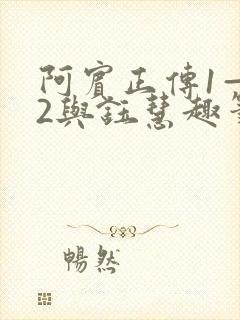 阿賓正傳1—
2與鈺慧趣事
暢然